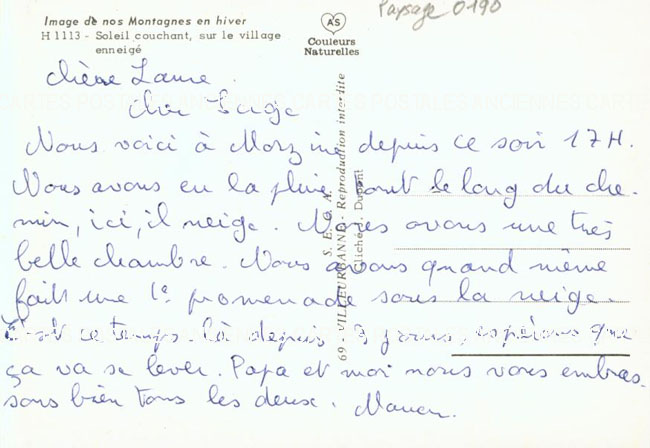 Paysage 0190
Image de nos Montagnes en hiver
H 1113 - Soleil couchant, sur le village
enneigé
AS
Couleurs
Naturelles
Chère Laure
Cher Serge
Nous voici à Morzine depuis ce soir 17H.
Nous avons eu la pluie tout le long du che-
min, ici, il neige. Nous avons une très
belle chambre. Nous avons quand même
fait une 1e promenade sous la neige.
C'est ce temps là depuis 3 jours, espérons que
ça va se lever. Papa et moi nous vous embras-
sons bien tous les deux. Maman.
S. E. G. A.
69 - VILLEURBANNE - Reproduction interdite
Cliché R. Dupont
CARTES POSTALES ANCIENNES